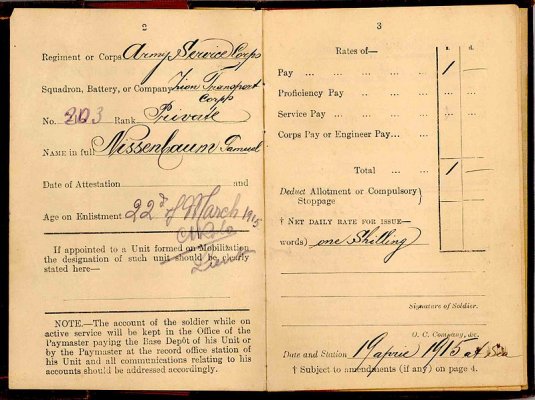 2
Regiment or Corps Army Service Corps
Squadron, Battery, or Company Zion Transport
Corps
No. 203 Rank Private
NAME in full Nissenbaum Samuel
Date of Attestation and
Age on Enlistment 22d of March 1915
If appointed to a Unit formed on Mobilization
the designation of such unit should be clearly
stated here—
NOTE.—The account of the soldier while on
active service will be kept in the Office of the
Paymaster paying the Base Depôt of his Unit or
by the Paymaster at the record office station of
his Unit and all communications relating to his
accounts should be addressed accordingly.
3
Rates of—
s. d.
Pay ... ... ... ... 1 /
Proficiency Pay ... ... ...
Service Pay ... ... ...
Corps Pay or Engineer Pay... ...
Total ... ... 1 /
Deduct Allotment or Compulsory
Stoppage }
† NET DAILY RATE FOR ISSUE—
words) one Shilling
Signature of Soldier.
O. C. Company, &c.
Date and Station 19 april 1915 at
† Subject to amendments (if any) on page 4.